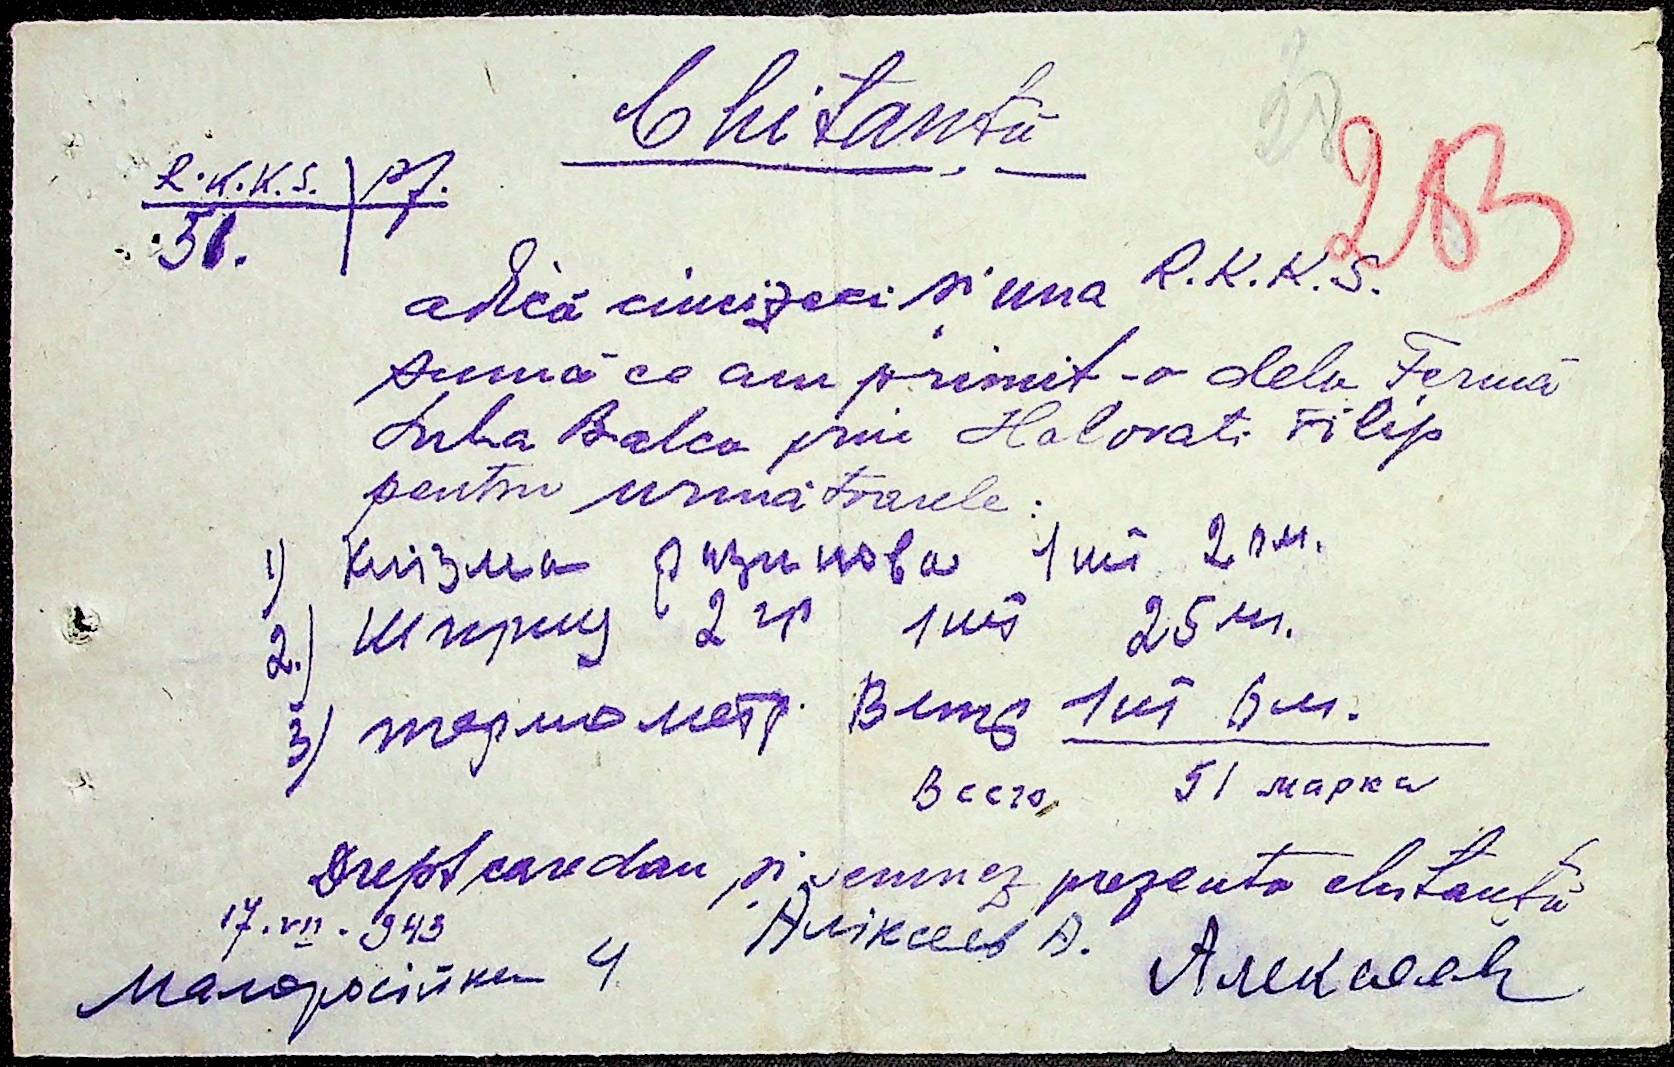 Chitanță
283
R.K.K.S. pf.
51.
adică cincizeci și una R.K.K.S.
sumă ce am primit-o dela Fermă
Suha Balca prin Halovati Filip
pentru următoarele:
1) Клізма разинова 1 шт 2 м.
2.) Шприц 2 гр 1 шт 25 м.
3) термометр. 1 шт 6 м.
Всего, 51 марка
Drept care dau și semnez prezenta chitanță
17.VII.943 Аліксеев А.
Малоросійска 4 Алексеев